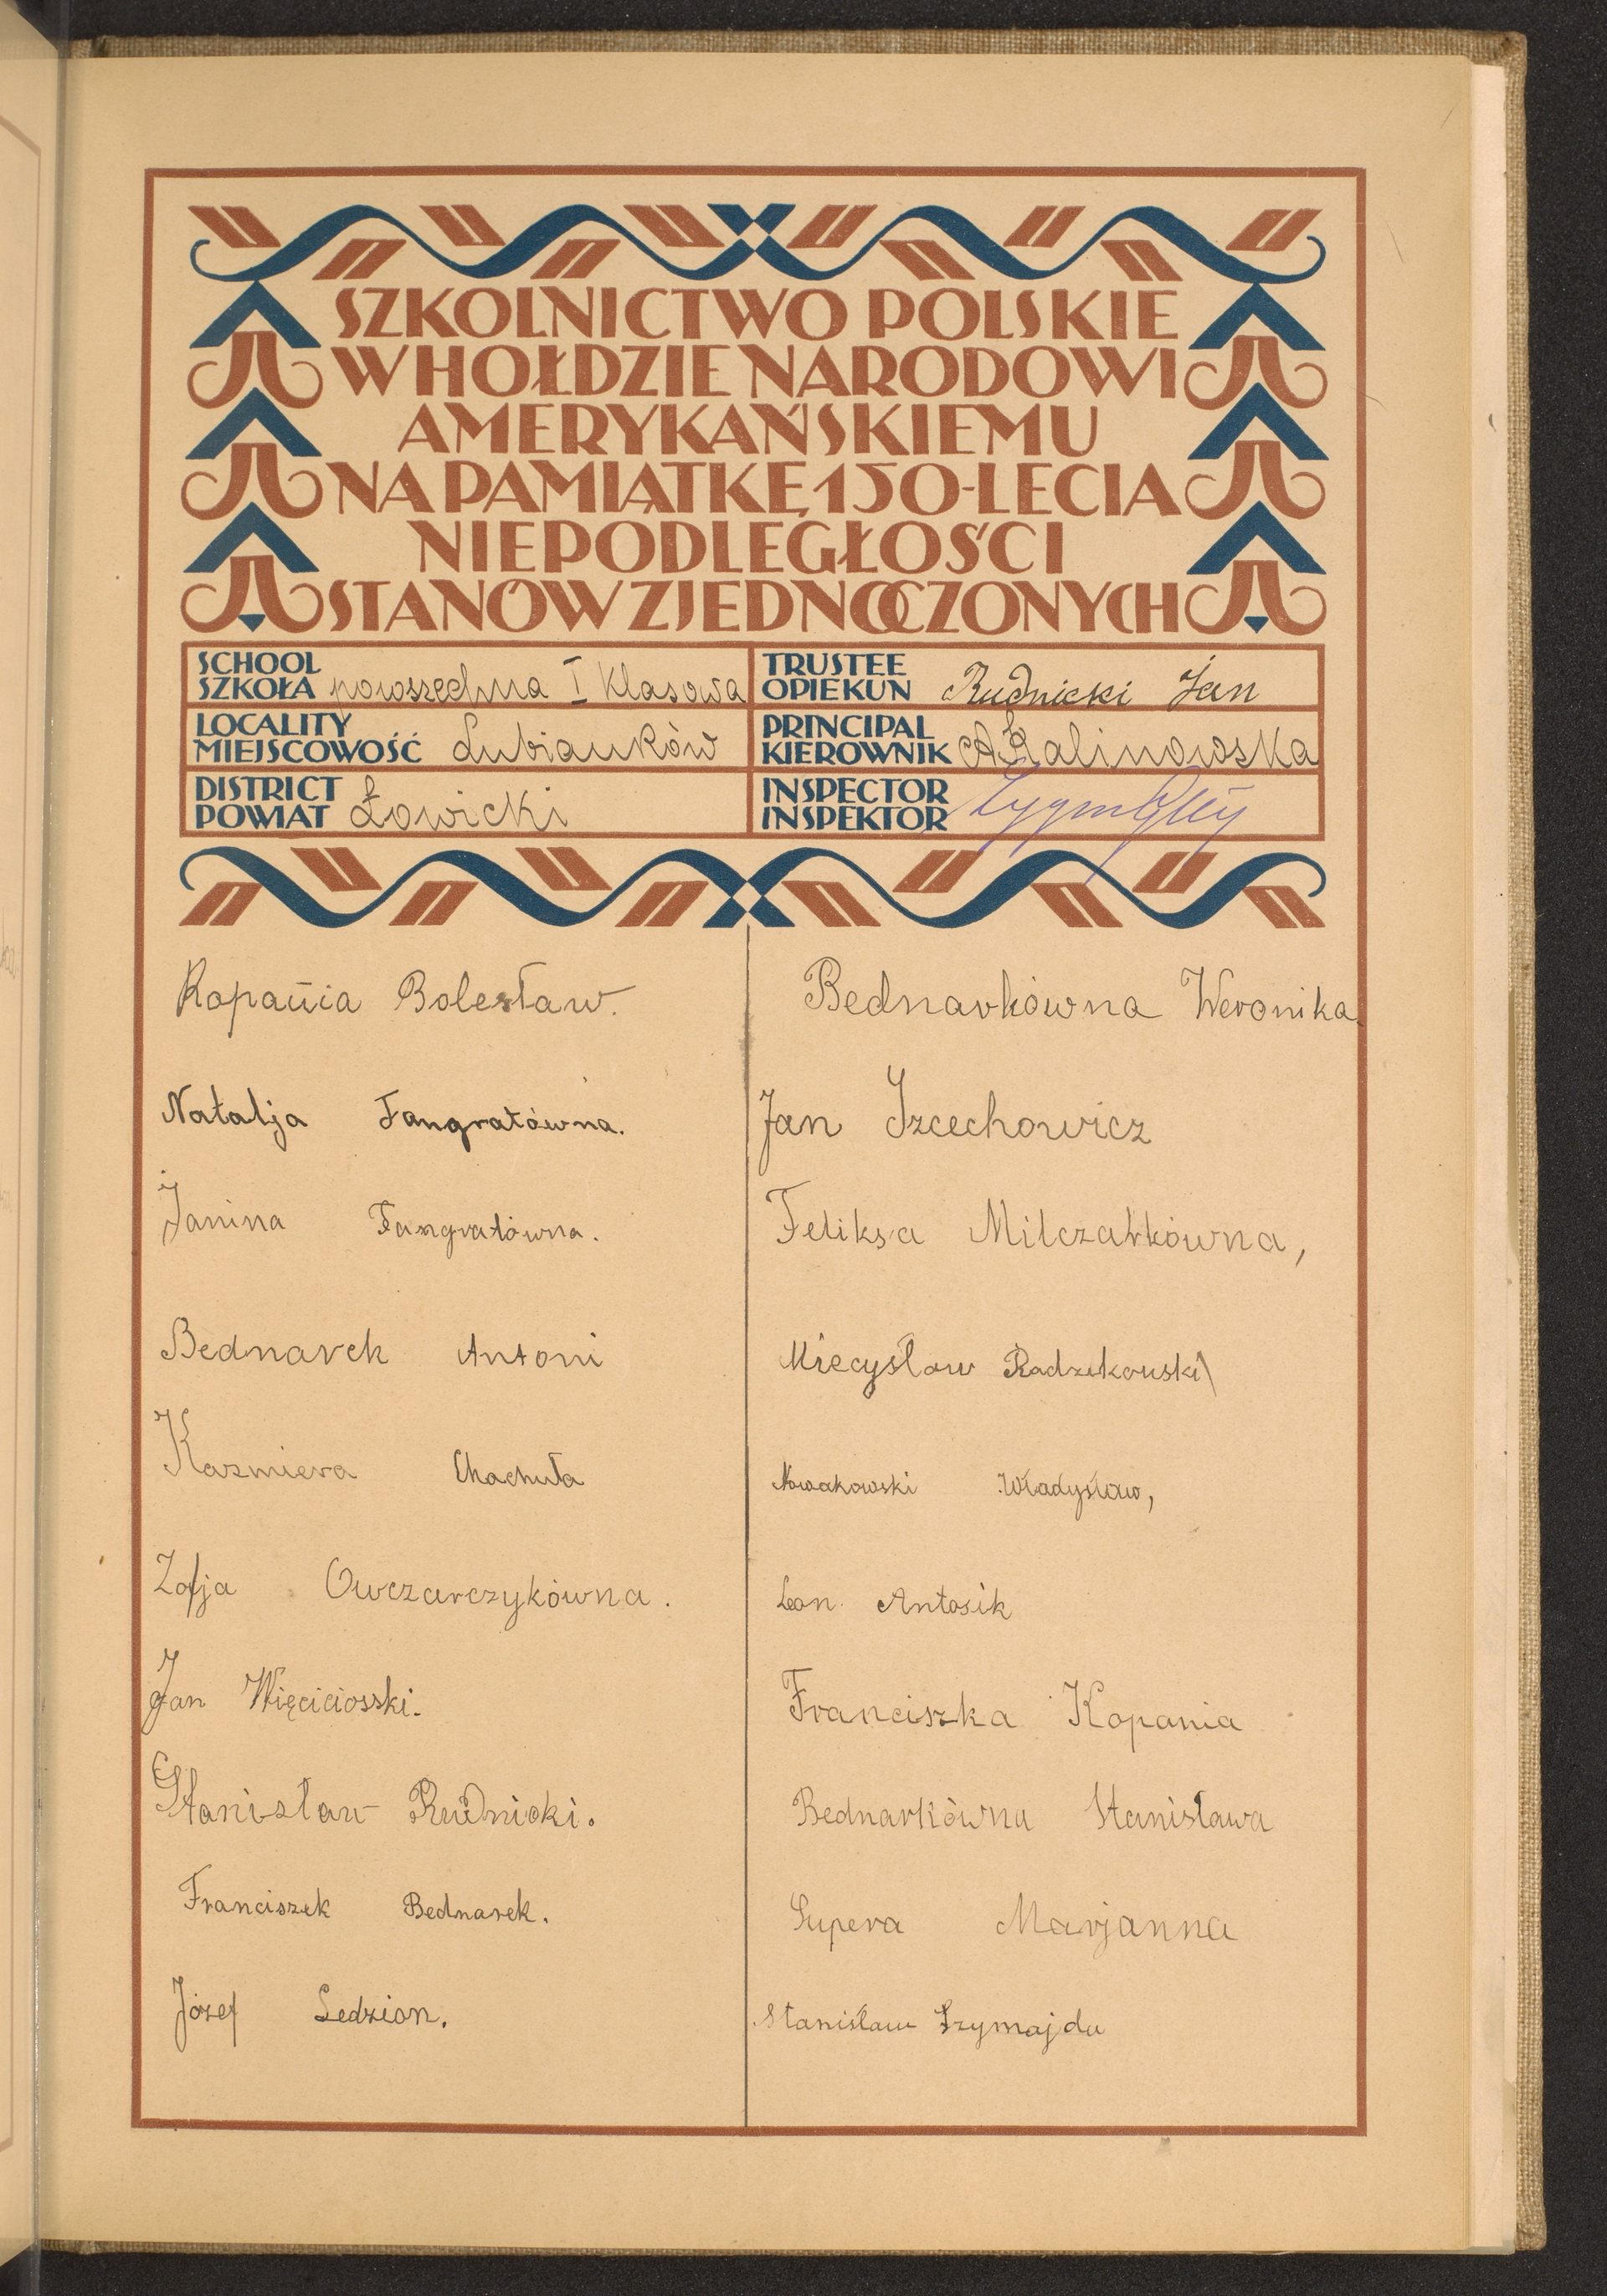 SZKOLNICTWO POLSKIE
W HOŁDZIE NARODOWI
AMERYKAŃSKIEMU
NA PAMIĄTKĘ 150-LECIA
NIEPODLEGŁOŚCI
STANÓW ZJEDNOCZONYCH
SCHOOL
SZKOŁA powszechna I Klasowa
TRUSTEE
OPIEKUN Rudnicki Jan
LOCALITY
MIEJSCOWOŚĆ Lubianków
PRINCIPAL
KIEROWNIK A Kalinowska
DISTRICT
POWIAT Łowicki
INSPECTOR
INSPEKTOR
Kopańia Bolesław.
Natalja Fangratówna.
Janina Fangratówna.
Bednarek Antoni
Kazmiera Chachuła
Zofja Owczarczykówna.
Jan Więciciosski.
Stanisław Rudnicki.
Franciszek Bednarek.
Józef Sedzion.
Bednarkówna Weronika.
Jan Szcechowicz
Feliksa Milczarkówna,
Miecysław Radzikowski
Nowakowski Władysław,
Leon Antosik
Franciszka Kopania
Bednarkówna Stanisława
Supera Marjanna
Stanisław Szymajda